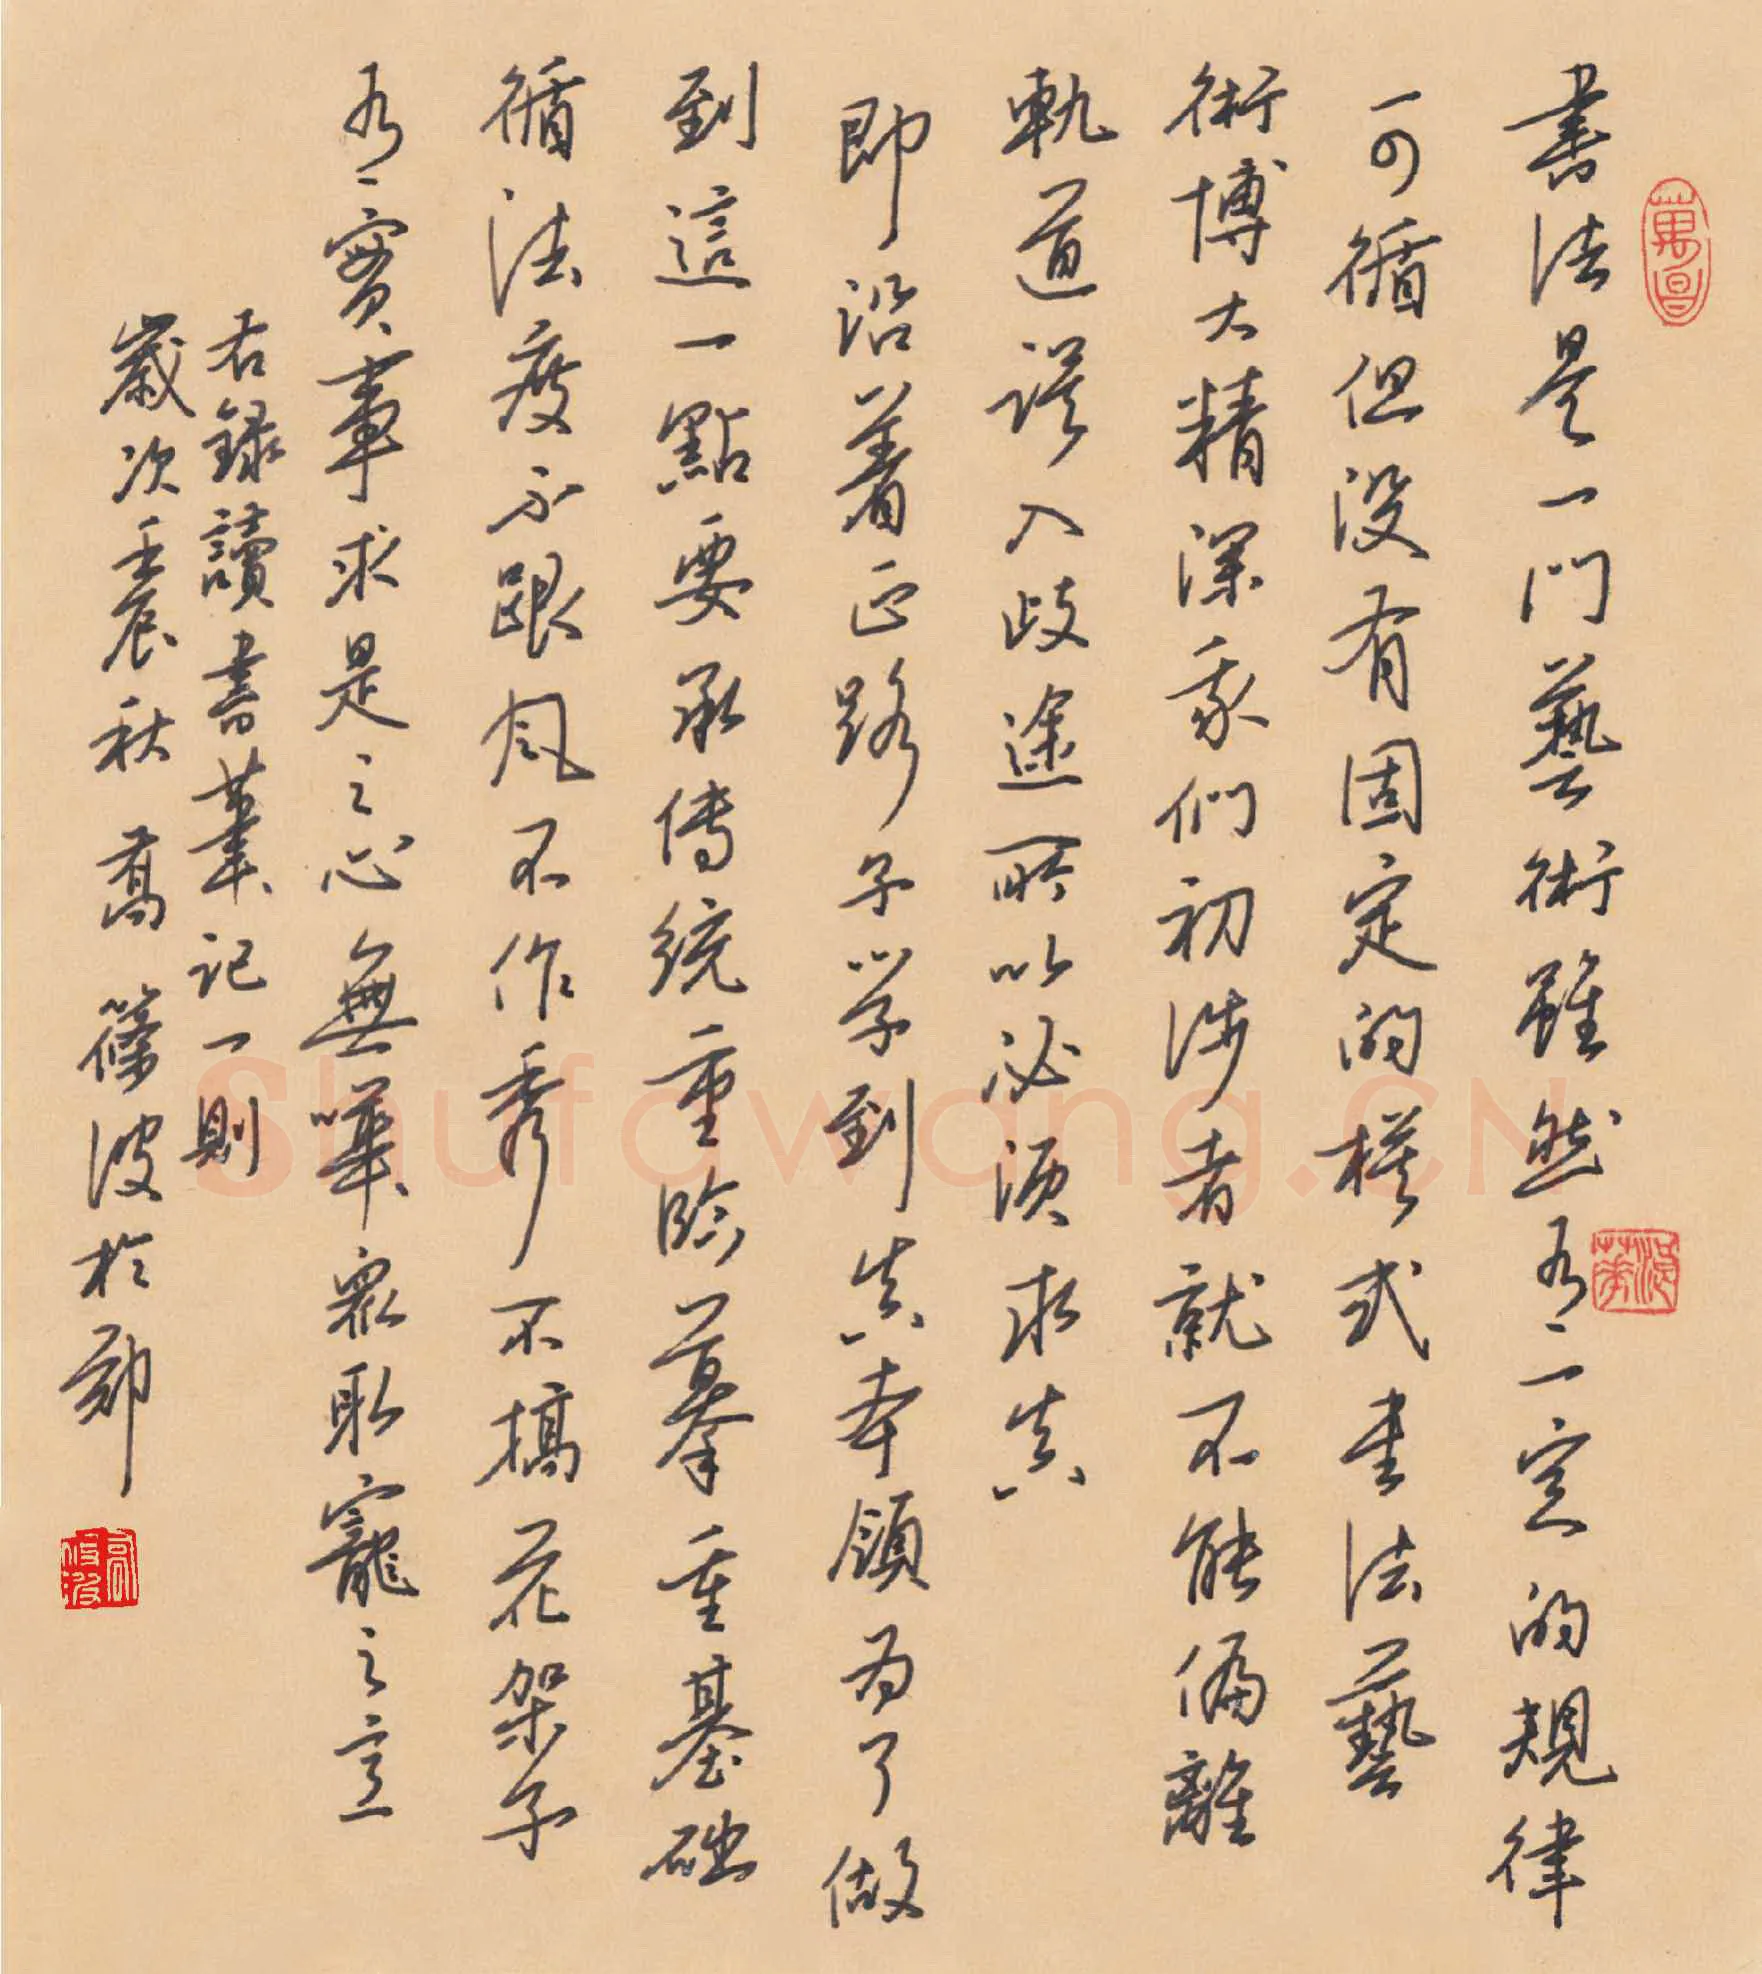 書法是一門藝術雖然有一定的規律
可循但没有固定的模式書法藝
術博大精深我們初涉者就不能偏離
軌道誤入歧途所以必須求真
即沿着正路子学到真本領为了做
到這一點要承傳統重臨摹重基础
循法度不跟風不作秀不搞花架子
有實事求是之心無嘩眾取寵之意
右録讀書筆記一則
歲次壬辰秋高篠波於鄭
Shufawang.CN